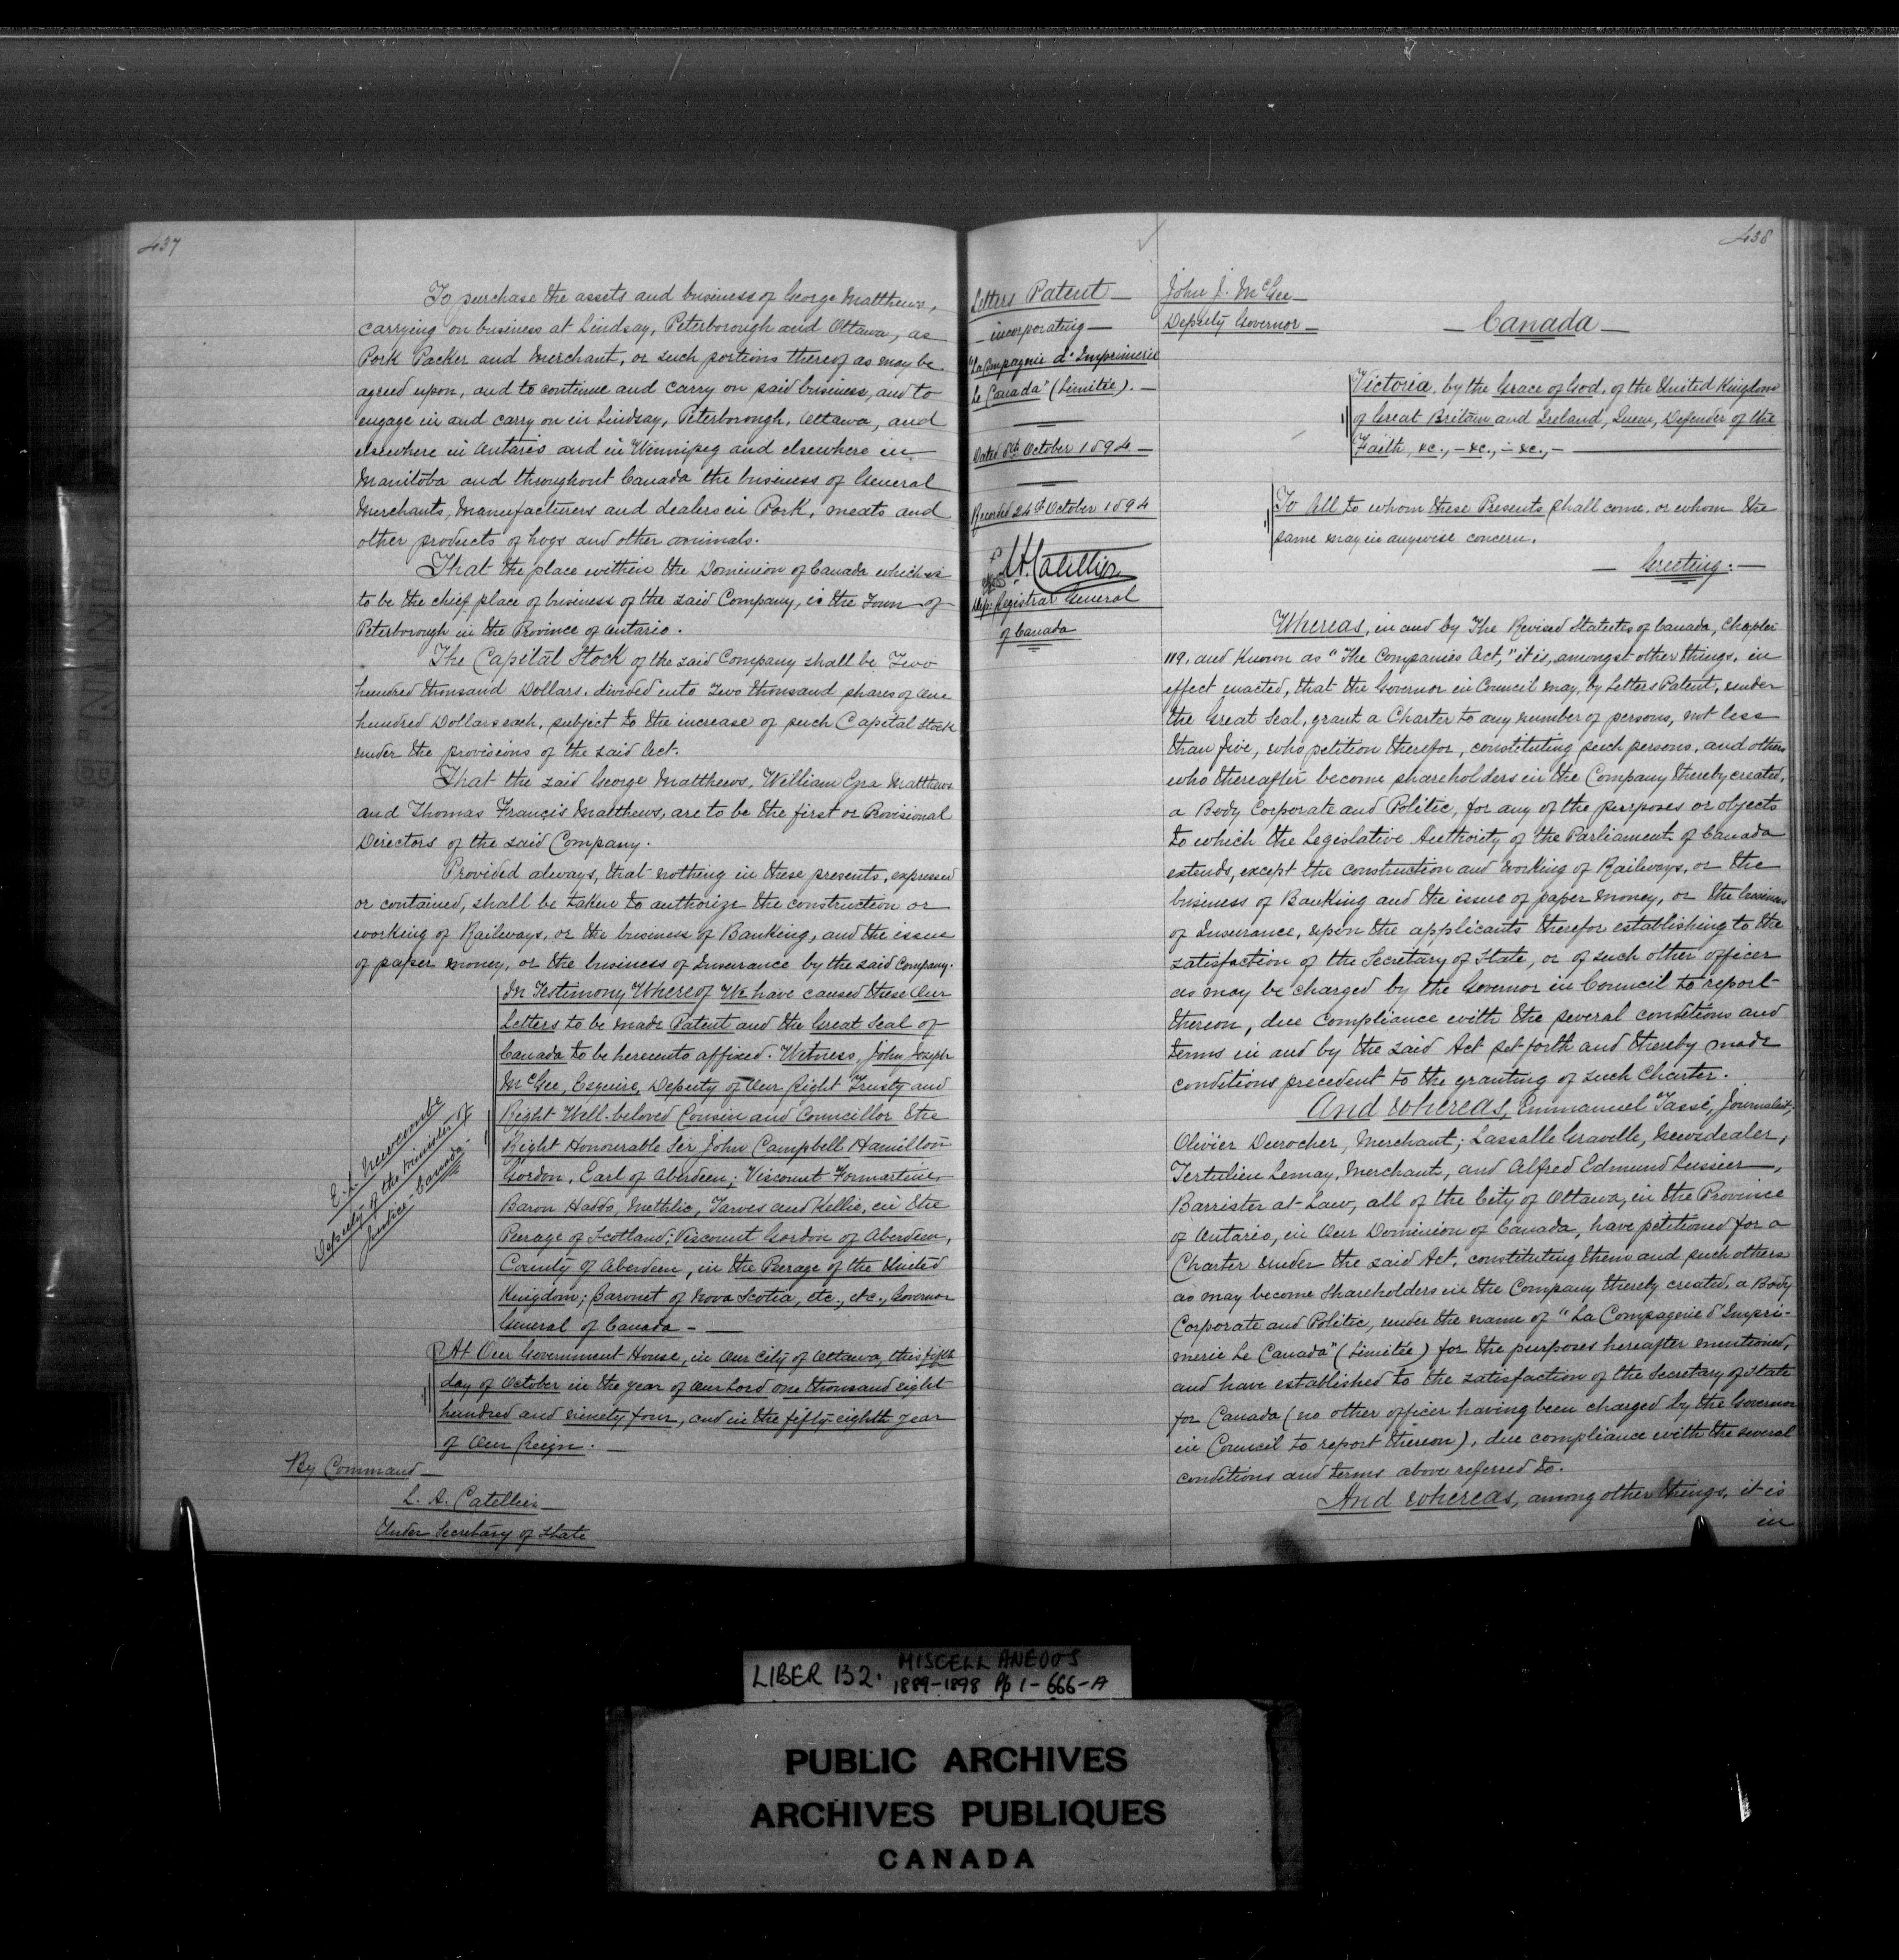 437
To purchase the assets and business of George Matthews,
carrying on business at Lindsay, Peterborough and Ottawa, as
Pork Packer and Merchant, or such portions thereof as may be
agreed upon, and to continue and carry on said business, and to
engage in and carry on in Lindsay, Peterborough, Ottawa, and
elsewhere in Ontario and in Winnipeg and elsewhere in
Manitoba and throughout Canada the business of General
Merchants, Manufacturers and dealers in Pork, meats and
other products of hogs and other animals.
That the place within the Dominion of Canada which is
to be the chief place of business of the said Company, is the Town of
Peterborough in the Province of Ontario.
The Capital Stock of the said Company shall be Two
hundred thousand Dollars, divided into Two thousand shares of One
hundred Dollars each, subject to the increase of such Capital Stock
under the provisions of the said Act.
That the said George Matthews, William Ezra Matthews
and Thomas Francis Matthews, are to be the first or Provisional
Directors of the said Company.
Provided always, that nothing in these presents, expressed
or contained, shall be taken to authorize the construction or
working of Railways, or the business of Banking, and the issue
of paper money, or the business of Insurance by the said Company.
In Testimony Whereof We have caused these Our
Letters to be made Patent and the Great Seal of
Canada to be hereunto affixed. Witness, John Joseph
McGee, Esquire, Deputy of Our Right Trusty and
Right Well-beloved Cousin and Councillor the
Right Honourable Sir John Campbell Hamilton
Gordon, Earl of Aberdeen; Viscount Formartine,
Baron Haddo, Methlic, Tarves and Kellie, in the
Peerage of Scotland; Viscount Gordon of Aberdeen,
County of Aberdeen, in the Peerage of the United
Kingdom; Baronet of Nova Scotia, etc., etc., Governor
General of Canada —
E. L. Newcombe
Deputy of the Minister of
Justice - Canada.
At Our Government House, in Our City of Ottawa, this fifth
day of October in the year of Our Lord one thousand eight
hundred and ninety four, and in the fifty-eighth year
of Our Reign. —
By Command —
L. A. Catellier —
Under Secretary of State
438
Letters Patent —
— incorporating —
"La Compagnie d'Imprimerie
Le Canada" (Limitée). —
Dated 8th October 1894 —
Recorded 24th October 1894
L. A. Catellier
Dep: Registrar General
of Canada
John J. McGee —
Deputy Governor —
— Canada —
Victoria, by the Grace of God, of the United Kingdom
of Great Britain and Ireland, Queen, Defender of the
Faith, &c., — &c., — &c., —
To All to whom these Presents shall come, or whom the
same may in anywise concern.
— Greeting: —
Whereas, in and by The Revised Statutes of Canada, Chapter
119, and Known as "The Companies Act," it is, amongst other things, in
effect enacted, that the Governor in Council may, by Letters Patent, under
the Great Seal, grant a Charter to any number of persons, not less
than five, who petition therefor, constituting such persons, and others
who thereafter become shareholders in the Company thereby created,
a Body Corporate and Politic, for any of the purposes or objects
to which the Legislative Authority of the Parliament of Canada
extends, except the construction and working of Railways, or the
business of Banking and the issue of paper money, or the business
of Insurance, upon the applicants therefor establishing to the
satisfaction of the Secretary of State, or of such other officer
as may be charged by the Governor in Council to report
thereon, due compliance with the several conditions and
terms in and by the said Act set forth and thereby made
conditions precedent to the granting of such Charter.
And whereas, Emmanuel Tassé, Journalist;
Olivier Durocher, Merchant; Lassalle Gravelle, Newsdealer,
Tertulien Lemay, Merchant, and Alfred Edmund Lussier,
Barrister-at-Law, all of the City of Ottawa, in the Province
of Ontario, in Our Dominion of Canada, have petitioned for a
Charter under the said Act, constituting them and such others
as may become Shareholders in the Company thereby created, a Body
Corporate and Politic, under the name of "La Compagnie d'Impri-
merie Le Canada" (Limitée) for the purposes hereafter mentioned,
and have established to the satisfaction of the Secretary of State
for Canada (no other officer having been charged by the Governor
in Council to report thereon), due compliance with the several
conditions and terms above referred to.
And whereas, among other things, it is
in
LIBER 132. MISCELLANEOUS
1889-1898 Pp 1-666-A
PUBLIC ARCHIVES
ARCHIVES PUBLIQUES
CANADA